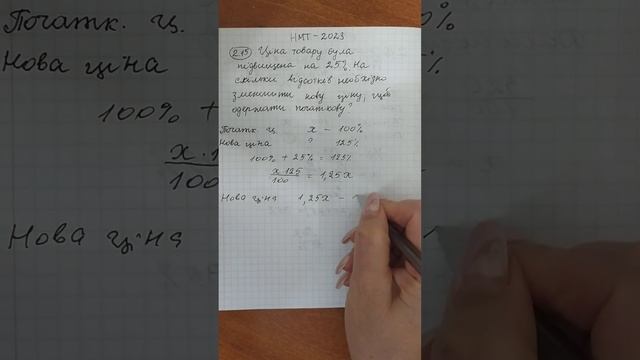 НМТ-2023
2.15 Ціна товару була
підвищена на 25%. На
скільки відсотків необхідно
зменшити нову ціну, щоб
одержати початкову?
Початк. ц. x - 100%
Нова ціна ? 125%
100% + 25% = 125%
x·125/100 = 1,25x
Нова ціна 1,25x -